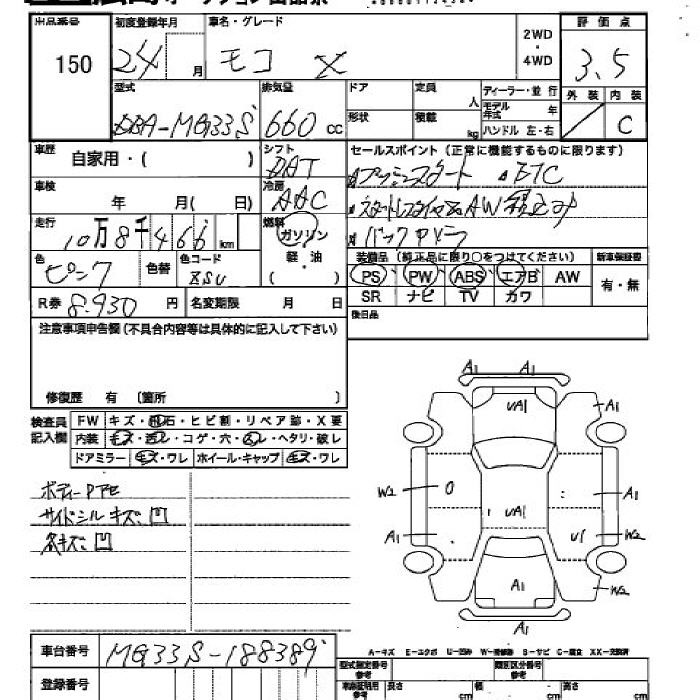 出品番号 初度登録年月 車名・グレード 2WD・4WD 評価点
150 24 月 モコ X 3.5
型式 排気量 ドア 定員 人 ディーラー・並行 外装 内装
DBA-MG33S 660 cc 形状 積載 kg モデル年式 年 C
ハンドル 左・右
車歴 自家用・( ) シフト セールスポイント(正常に機能するものに限ります)
DAT プッシュスタート ETC
車検 年 月( 日) 冷房 AAC
走行 10万8千466 km 燃料 ガソリン 軽・油 ( )
バックカメラ
色 ピンク 色替 色コード 装備品(純正品に限り○をつけてください) 新車保証書
PS PW ABS エアB AW 有・無
R券 8.930 円 名変期限 月 日 SR ナビ TV カワ
注意事項申告欄(不具合内容等は具体的に記入して下さい) 後日品
修復歴 有 〔箇所 〕
検査員記入欄 FW キズ・飛石・ヒビ割・リペア跡・X要
内装 ・コゲ・穴・ ・ヘタリ・破レ
ドアミラー キズ・ワレ ホイール・キャップ キズ・ワレ
ボディー
サイドシル キズ 凹
キズ 凹
A1 A1
UA1 A1
W2 O A1
UA1
A1 U1 W2
A1 W2
A1
車台番号 MG33S-188389
A-キズ E-エクボ U-凹み W-補修跡 S-サビ C-腐食 XX-交換済
登録番号 型式指定番号 参考 類別区分番号 参考
車庫証明用 参考 長さ cm 幅 cm 高さ cm